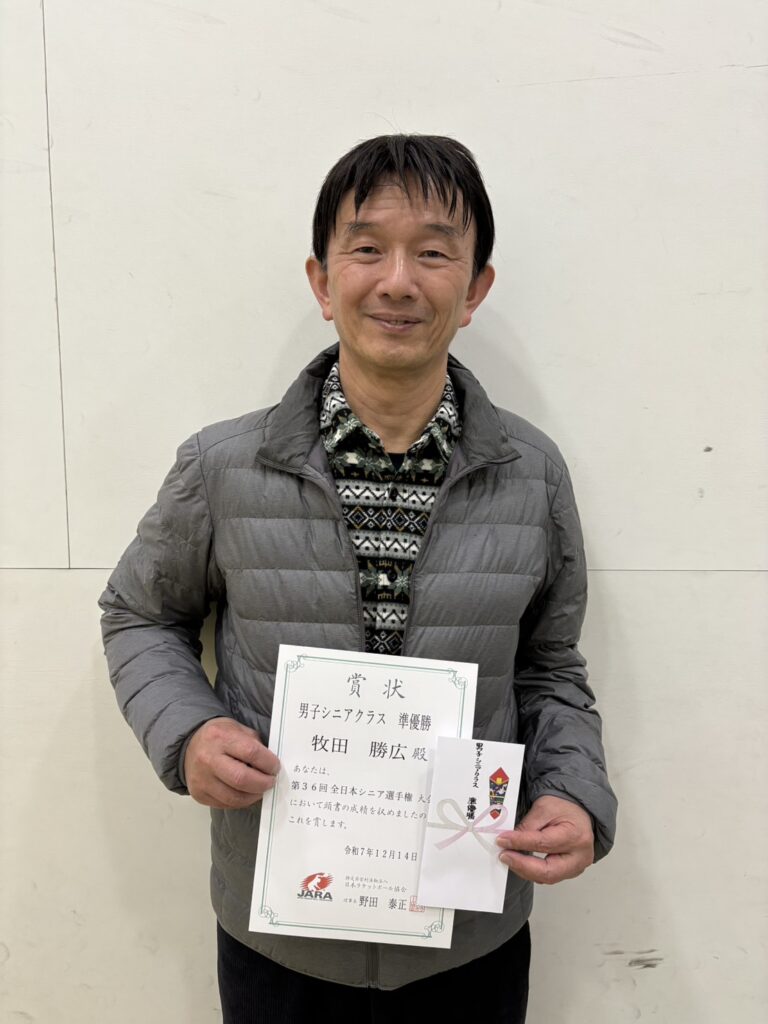 賞状
男子シニアクラス 準優勝
牧田 勝広 殿
あなたは、
第36回 全日本シニア選手権 大会
において頭書の成績を収めましたの
これを賞します。
令和7年12月14日
JARA
特定非営利活動法人
日本ラケットボール協会
理事長 野田 泰正
男子シニアクラス
準優勝